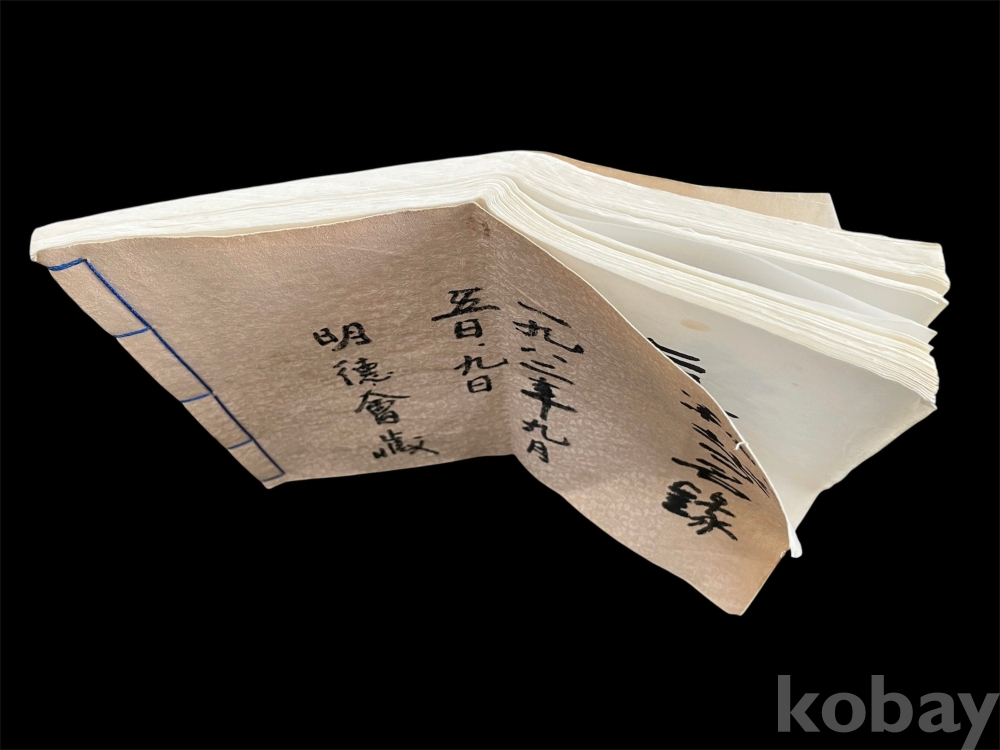 錄
一九八二年九月
五日、九日
明德會藏
kobay